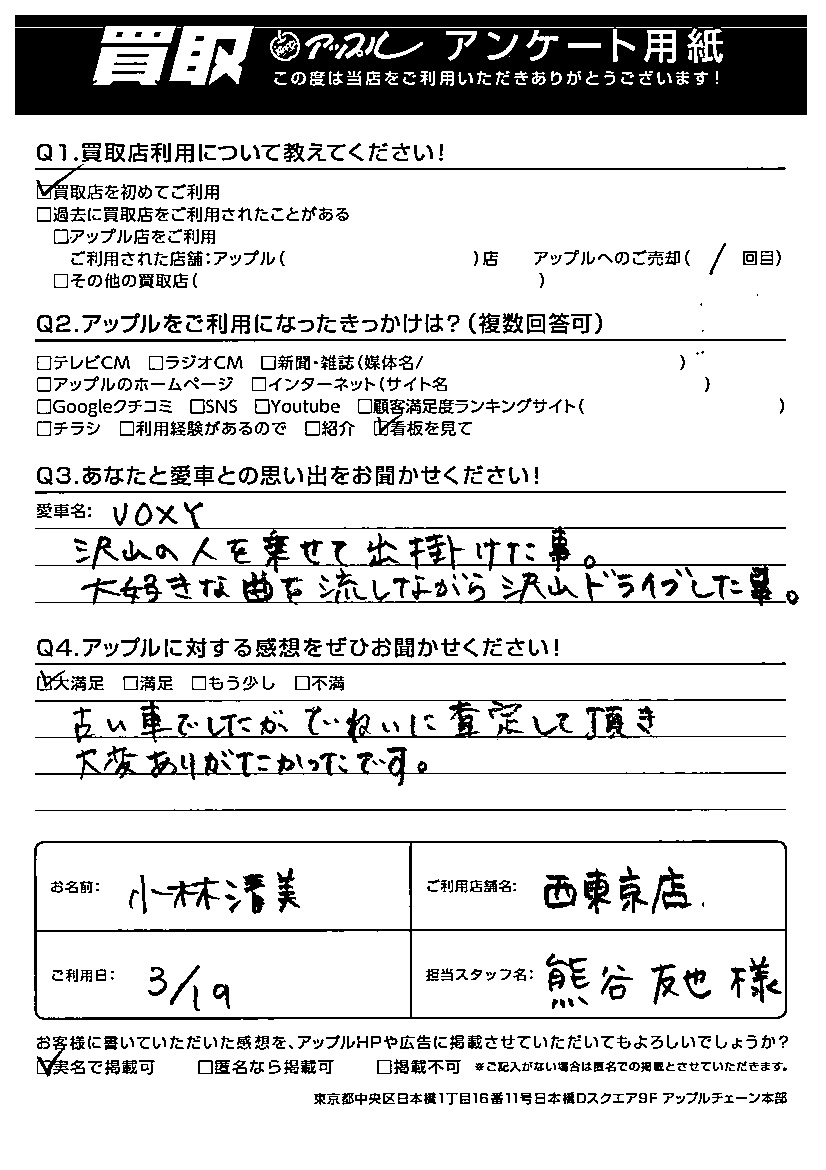 買取 アップル アンケート用紙
この度は当店をご利用いただきありがとうございます!
Q1.買取店利用について教えてください!
☑買取店を初めてご利用
□過去に買取店をご利用されたことがある
□アップル店をご利用
ご利用された店舗:アップル( )店 アップルへのご売却( / 回目)
□その他の買取店( )
Q2.アップルをご利用になったきっかけは?(複数回答可)
□テレビCM □ラジオCM □新聞・雑誌(媒体名/ )
□アップルのホームページ □インターネット(サイト名 )
□Googleクチコミ □SNS □Youtube □顧客満足度ランキングサイト( )
□チラシ □利用経験があるので □紹介 ☑看板を見て
Q3.あなたと愛車との思い出をお聞かせください!
愛車名: VOXY
沢山の人を乗せて出掛けた事。
大好きな曲を流しながら沢山ドライブした事。
Q4.アップルに対する感想をぜひお聞かせください!
☑大満足 □満足 □もう少し □不満
古い車でしたがていねいに査定して頂き
大変ありがたかったです。
お名前: 小林清美 ご利用店舗名: 西東京店.
ご利用日: 3/19 担当スタッフ名: 熊谷友也様
お客様に書いていただいた感想を、アップルHPや広告に掲載させていただいてもよろしいでしょうか?
☑実名で掲載可 □匿名なら掲載可 □掲載不可 ※ご記入がない場合は匿名での掲載とさせていただきます。
東京都中央区日本橋1丁目16番11号日本橋Dスクエア9F アップルチェーン本部